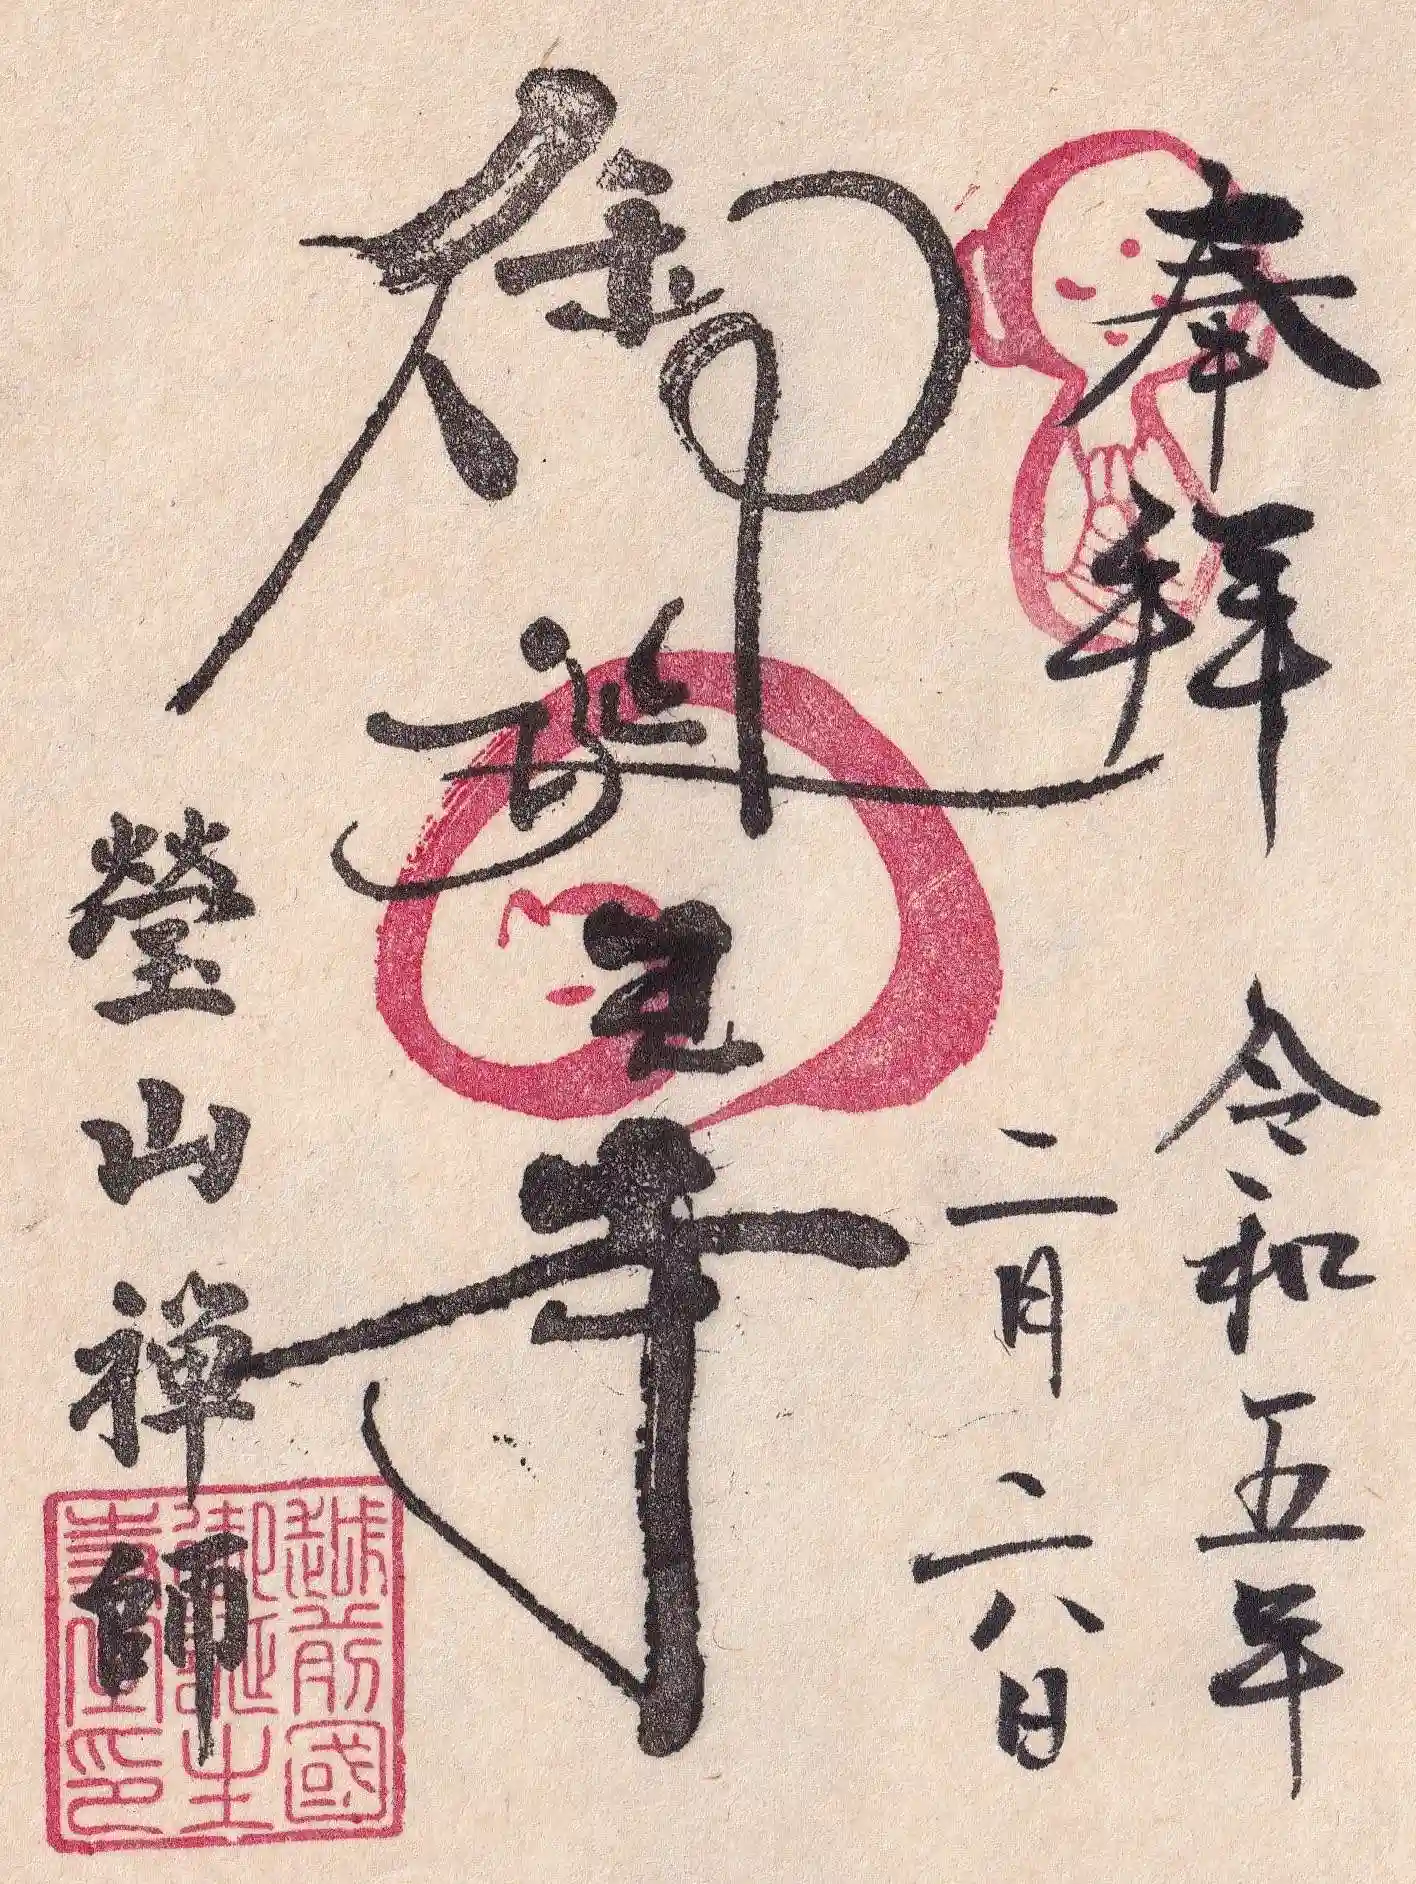 奉拝
令和五年
二月六日
御誕生寺
瑩山禅師
越前國
御誕生
寺之印